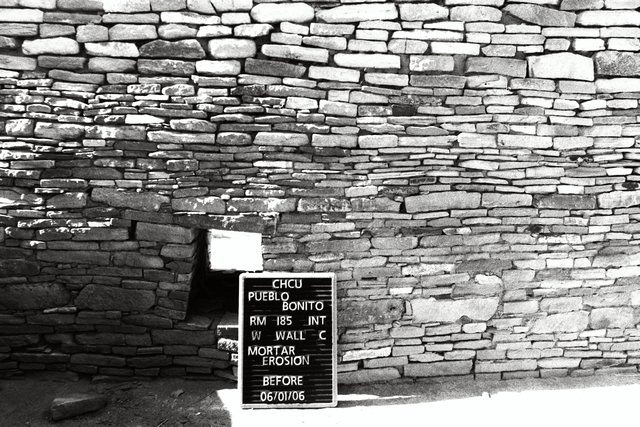 CHCU
PUEBLO
BONITO
RM 185 INT
W WALL C
MORTAR
EROSION
BEFORE
06/01/06